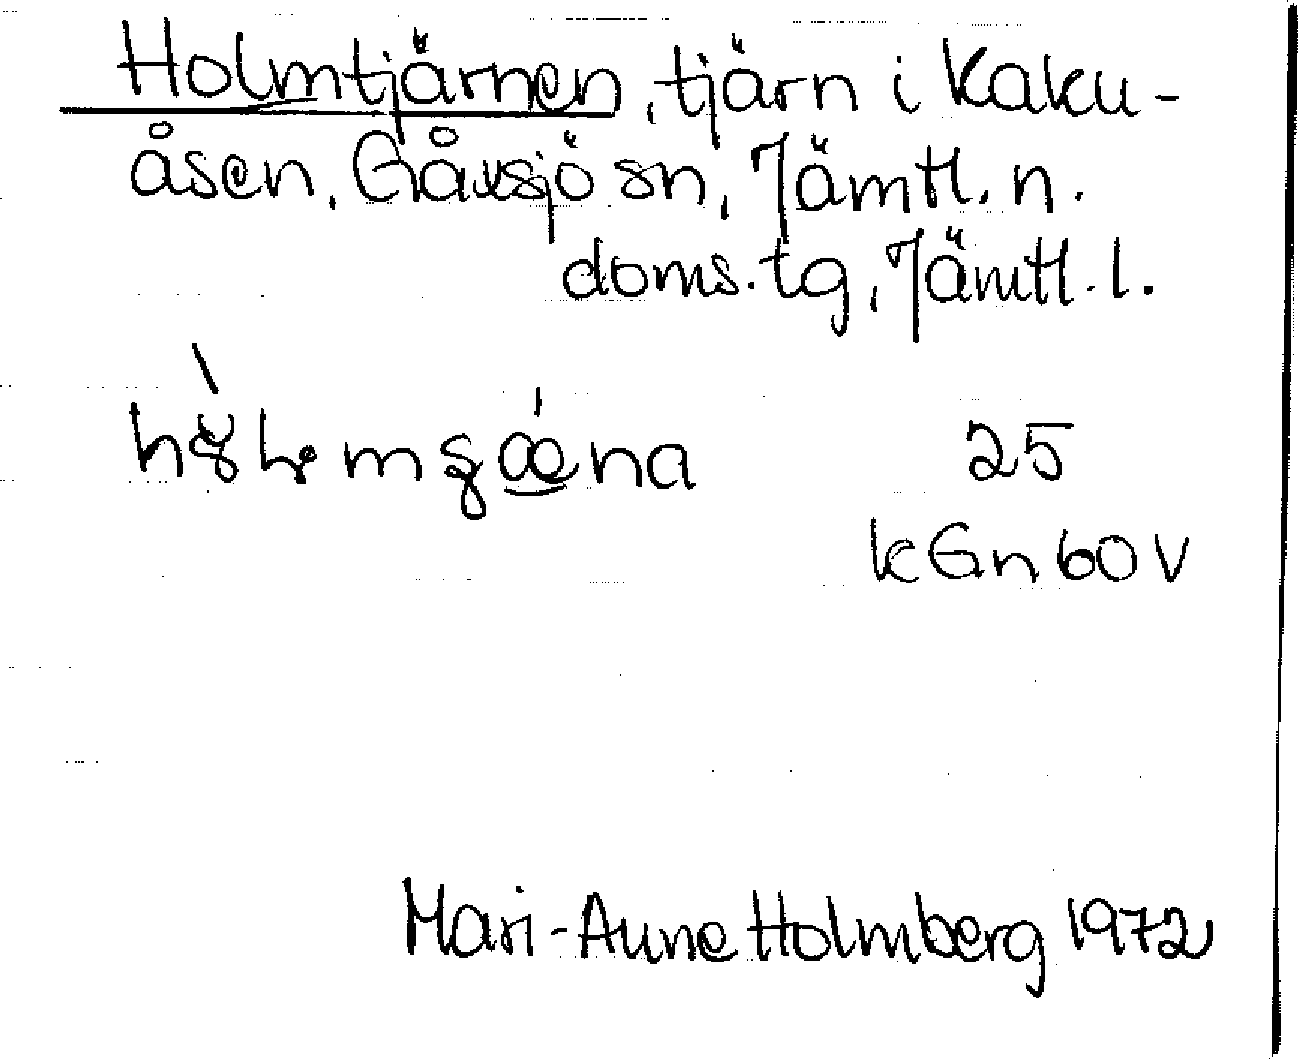 Holmtjärnen, tjärn i Kaku-
åsen, Gåxsjö sn, Jämtl. n.
doms. tg, Jämtl. l.
25
kGn60V
Mari-Anne Holmberg 1972